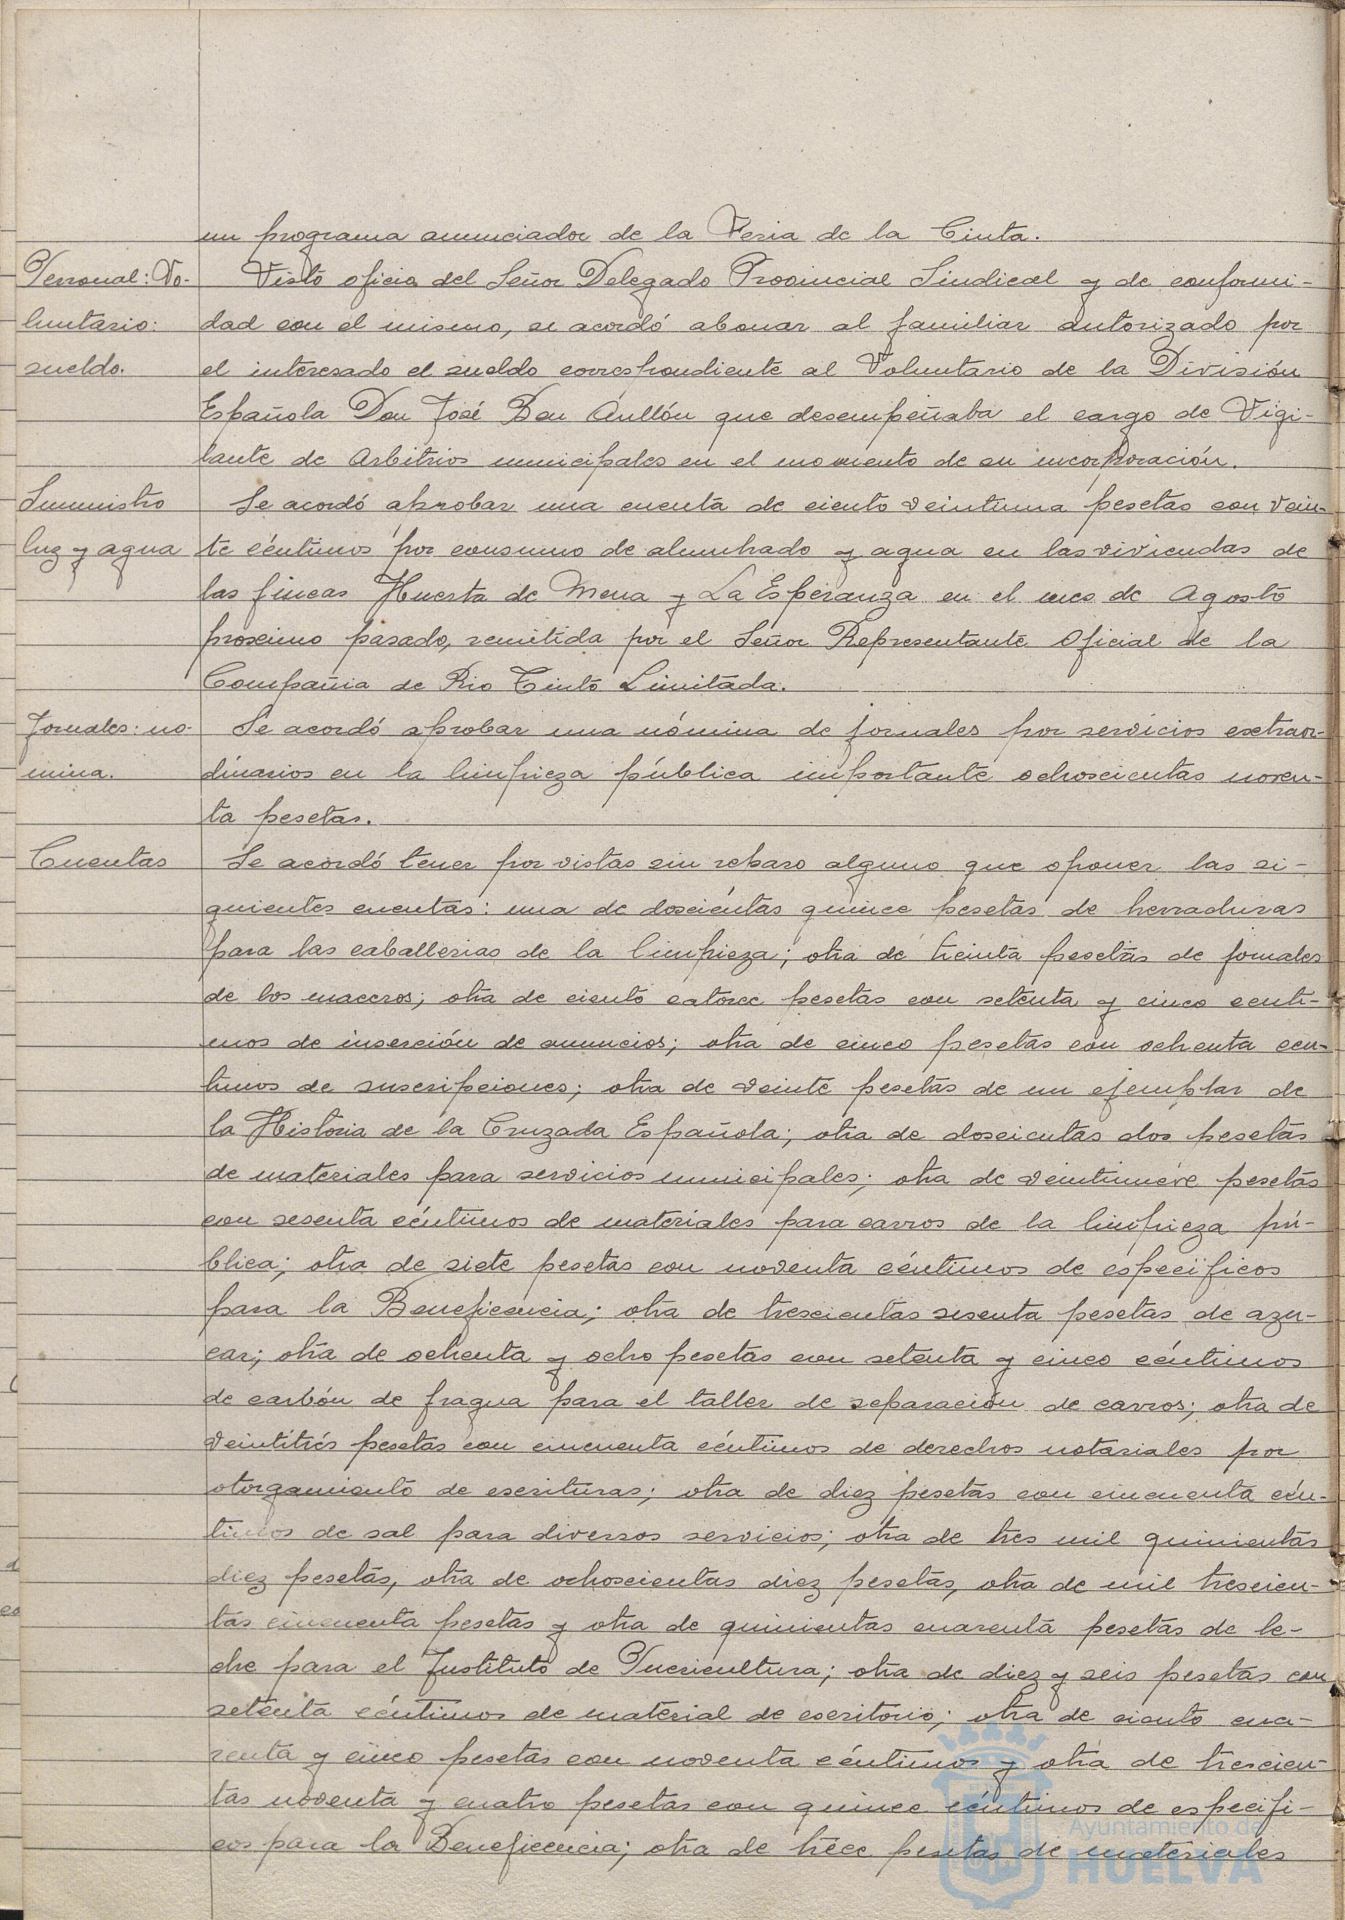 un programa anunciador de la Feria de la Cinta.
Personal: Vo-
luntario:
sueldo.
Visto oficio del Señor Delegado Provincial Sindical y de conformi-
dad con el mismo, se acordó abonar al familiar autorizado por
el interesado el sueldo correspondiente al Voluntario de la División
Española Don José Ben Aullón que desempeñaba el cargo de Vigi-
lante de Arbitrios municipales en el momento de su incorporación.
Suministro
luz y agua
Se acordó aprobar una cuenta de ciento veintiuna pesetas con vein-
te céntimos por consumo de alumbrado y agua en las viviendas de
las fincas Huerta de Mena y La Esperanza en el mes de Agosto
proximo pasado, remitida por el Señor Representante Oficial de la
Compañia de Rio Tinto Limitada.
Jornales: no-
mina.
Se acordó aprobar una nómina de jornales por servicios extraor-
dinarios en la limpieza pública importante ochoscientas noven-
ta pesetas.
Cuentas
Se acordó tener por vistas sin reparo alguno que oponer las si-
guientes cuentas: una de doscientas quince pesetas de herraduras
para las caballerias de la limpieza; otra de treinta pesetas de jornales
de los maceros; otra de ciento catorce pesetas con setenta y cinco centi-
mos de inserción de anuncios; otra de cinco pesetas con ochenta cen-
timos de suscripciones; otra de veinte pesetas de un ejemplar de
la Historia de la Cruzada Española; otra de doscientas dos pesetas
de materiales para servicios municipales; otra de veintinueve pesetas
con sesenta céntimos de materiales para carros de la limpieza pú-
blica; otra de siete pesetas con noventa céntimos de especificos
para la Beneficencia; otra de trescientas sesenta pesetas de azu-
car; otra de ochenta y ocho pesetas con setenta y cinco céntimos
de carbón de fragua para el taller de reparación de carros; otra de
veintitrés pesetas con cincuenta céntimos de derechos notariales por
otorgamiento de escrituras; otra de diez pesetas con cincuenta cén-
timos de sal para diversos servicios; otra de tres mil quinientas
diez pesetas, otra de ochoscientas diez pesetas, otra de mil trescien-
tas cincuenta pesetas y otra de quinientas cuarenta pesetas de le-
che para el Instituto de Puericultura; otra de diez y seis pesetas con
setenta céntimos de material de escritorio; otra de ciento cua-
renta y cinco pesetas con noventa céntimos y otra de trescien-
tas noventa y cuatro pesetas con quince céntimos de especifi-
cos para la Beneficencia; otra de trece pesetas de materiales
Ayuntamiento de
HUELVA